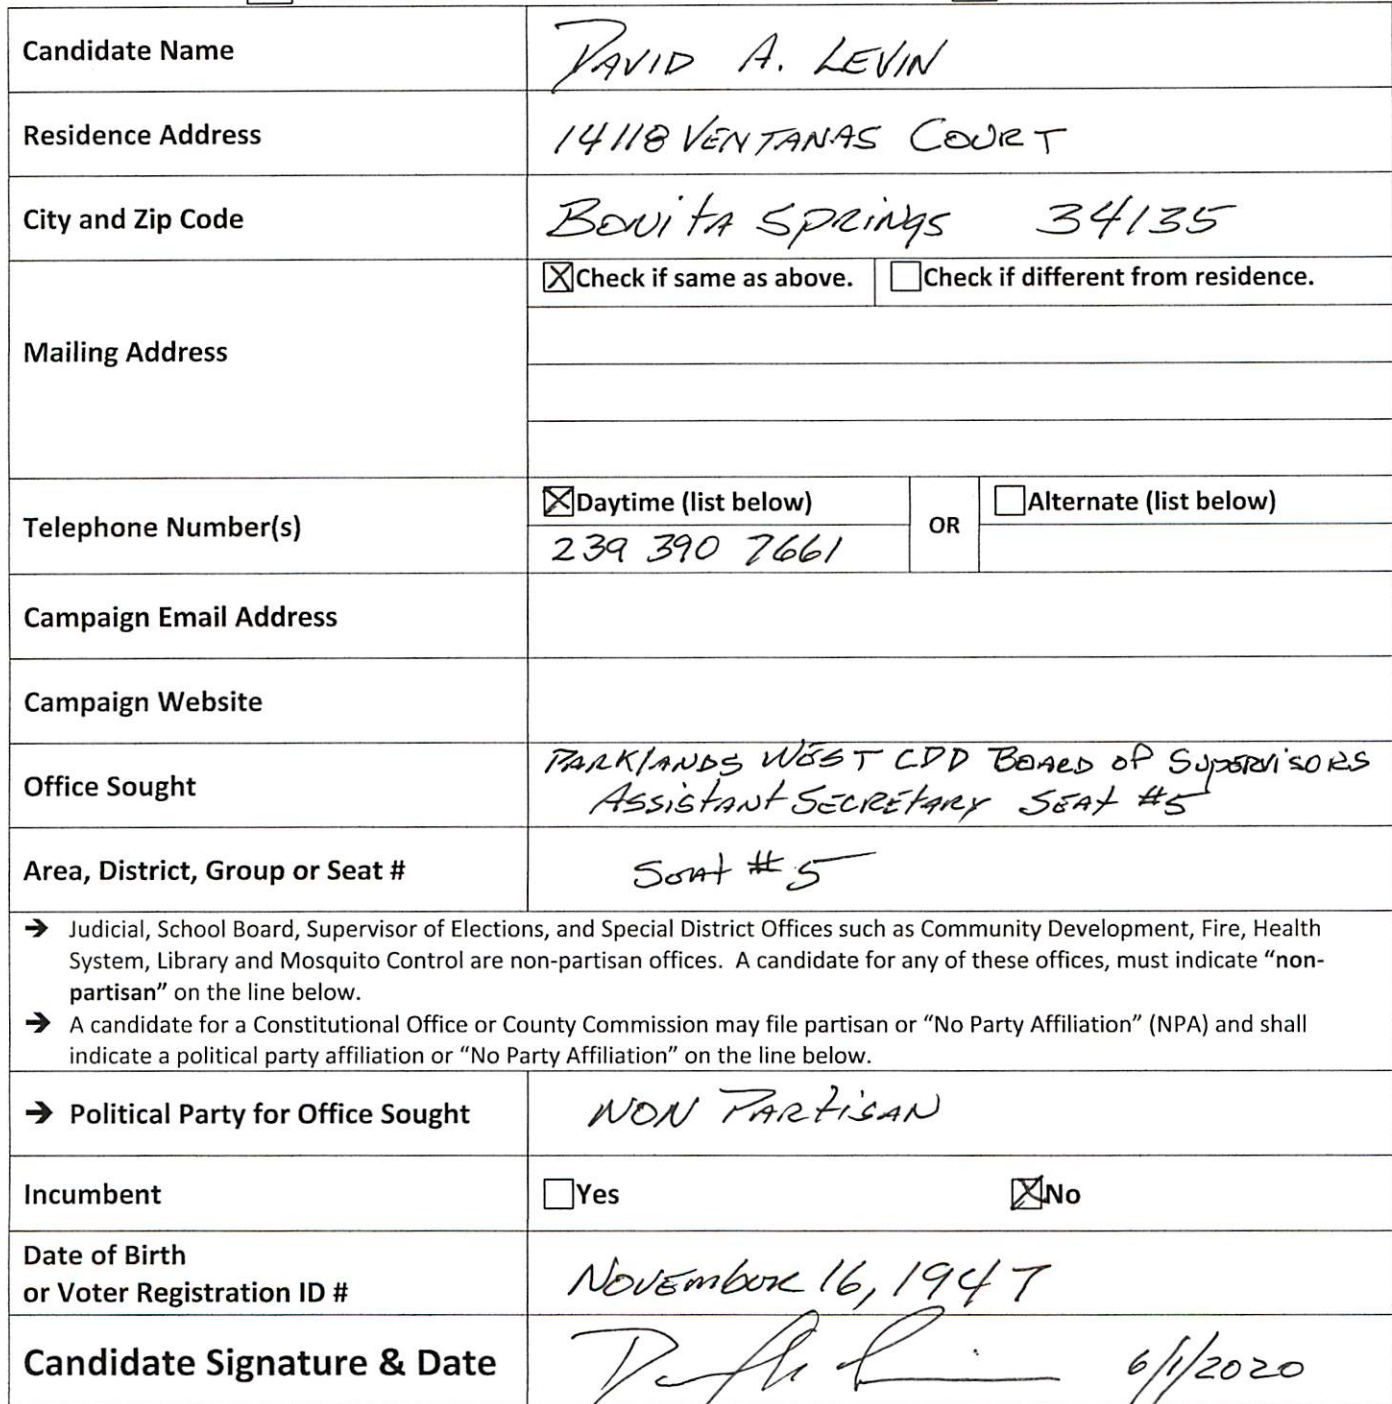 Candidate Name DAVID A. LEVIN
Residence Address 14118 VENTANAS COURT
City and Zip Code BONITA SPRINGS 34135
☒Check if same as above. ☐Check if different from residence.
Mailing Address
☒Daytime (list below) OR ☐Alternate (list below)
Telephone Number(s)
239 390 7661
Campaign Email Address
Campaign Website
Office Sought PARKLANDS WEST CDD BOARD OF SUPERVISORS
ASSISTANT SECRETARY SEAT #5
Area, District, Group or Seat # SEAT #5
➔ Judicial, School Board, Supervisor of Elections, and Special District Offices such as Community Development, Fire, Health
System, Library and Mosquito Control are non-partisan offices. A candidate for any of these offices, must indicate “non-
partisan” on the line below.
➔ A candidate for a Constitutional Office or County Commission may file partisan or “No Party Affiliation” (NPA) and shall
indicate a political party affiliation or “No Party Affiliation” on the line below.
➔ Political Party for Office Sought NON PARTISAN
Incumbent ☐Yes ☒No
Date of Birth
or Voter Registration ID # NOVEMBER 16, 1947
Candidate Signature & Date 6/1/2020